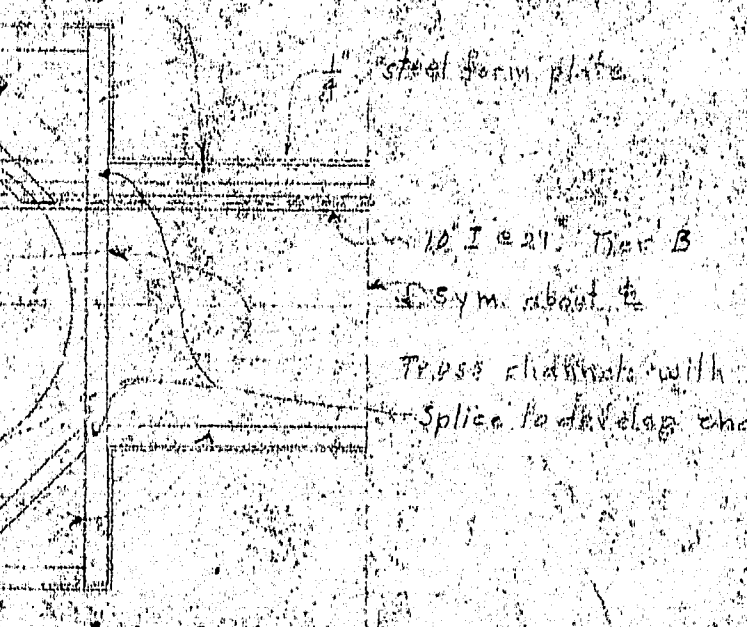 1/4" steel form plate
10" I @ 21" Tier B
Sym. about ℄
Truss channels with
Splice to develop